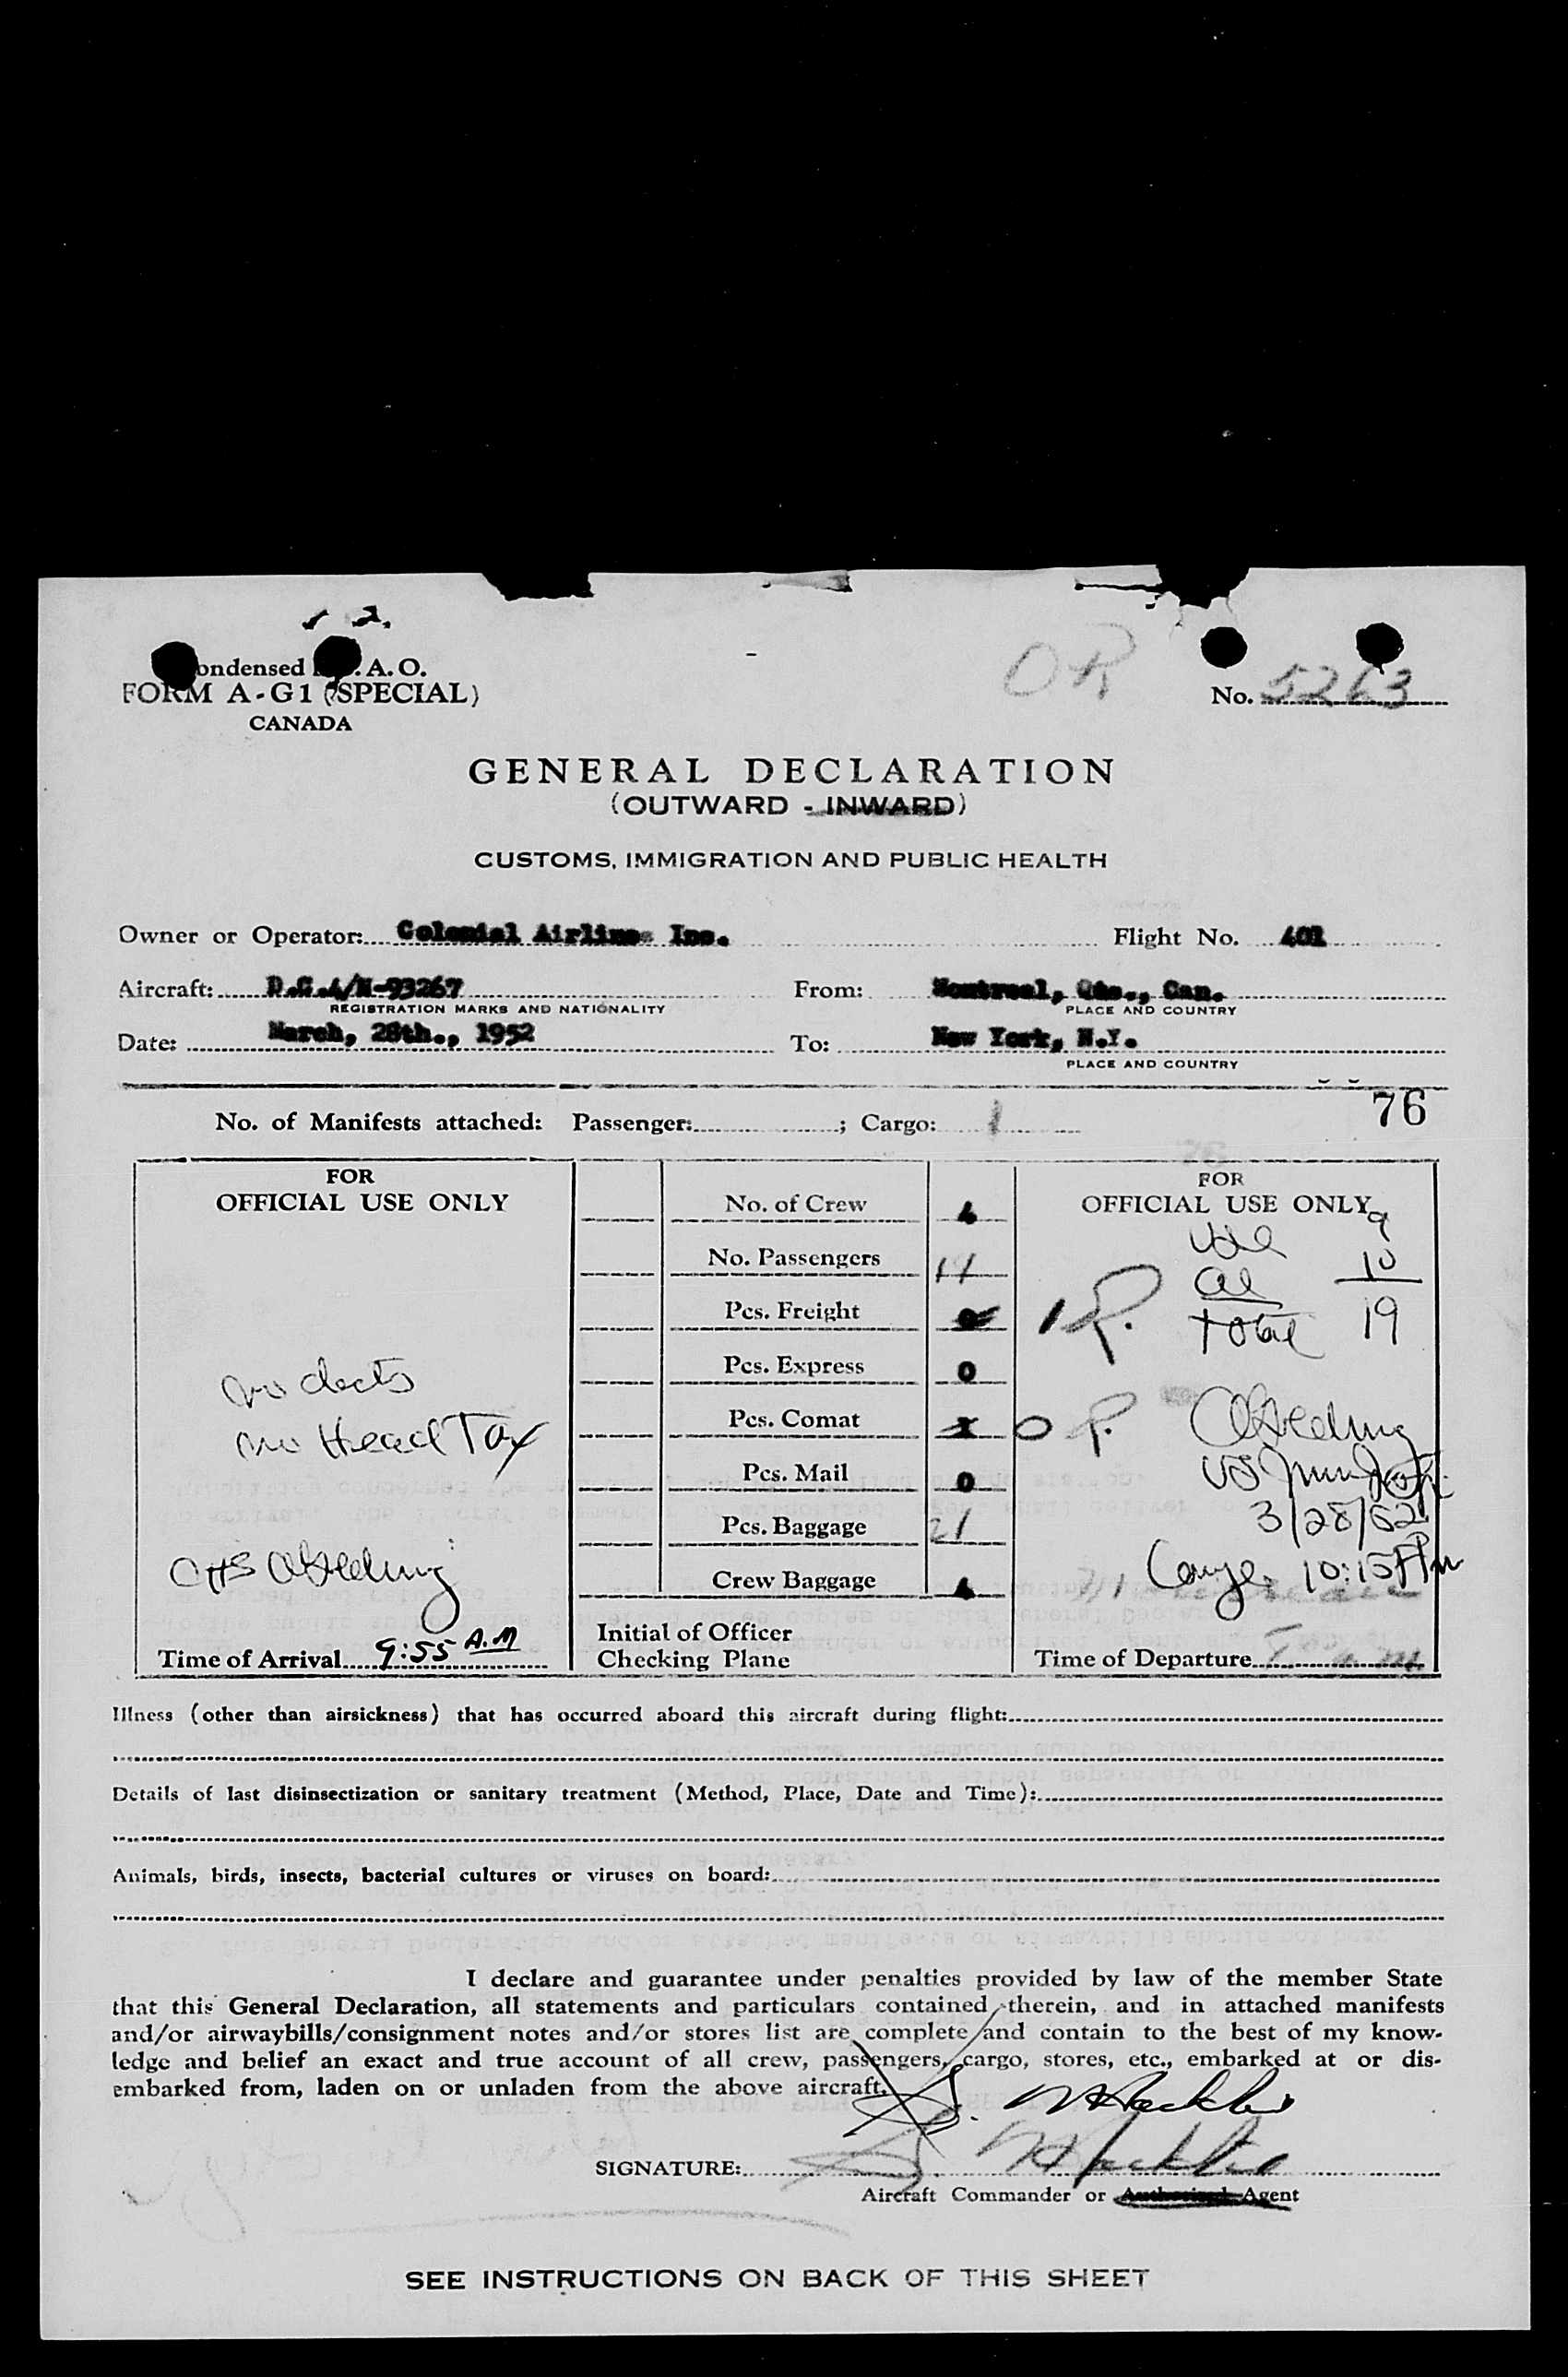 2.
ondensed . A. O.
FORM A-G1 (SPECIAL)
CANADA
OR
No. 5263
GENERAL DECLARATION
(OUTWARD - INWARD)
CUSTOMS, IMMIGRATION AND PUBLIC HEALTH
Owner or Operator: Colonial Airlines Inc. Flight No. 401
Aircraft: D.C.4/N-93267 From: Montreal, Que., Can.
REGISTRATION MARKS AND NATIONALITY PLACE AND COUNTRY
Date: March, 28th., 1952 To: New York, N.Y.
PLACE AND COUNTRY
76
No. of Manifests attached: Passenger: ; Cargo: 1
FOR
OFFICIAL USE ONLY
no docts
no Head Tax
Time of Arrival 9:55 A.M
No. of Crew 4
No. Passengers
Pcs. Freight
Pcs. Express 0
Pcs. Comat
Pcs. Mail 0
Pcs. Baggage 21
Crew Baggage 4
Initial of Officer
Checking Plane
FOR
OFFICIAL USE ONLY
9
10
1 P. Total 19
0 P.
3/28/52
10:15 AM
Time of Departure
Illness (other than airsickness) that has occurred aboard this aircraft during flight:
Details of last disinsectization or sanitary treatment (Method, Place, Date and Time):
Animals, birds, insects, bacterial cultures or viruses on board:
I declare and guarantee under penalties provided by law of the member State
that this General Declaration, all statements and particulars contained therein, and in attached manifests
and/or airwaybills/consignment notes and/or stores list are complete and contain to the best of my know-
ledge and belief an exact and true account of all crew, passengers, cargo, stores, etc., embarked at or dis-
embarked from, laden on or unladen from the above aircraft.
SIGNATURE:
Aircraft Commander or Authorized Agent
SEE INSTRUCTIONS ON BACK OF THIS SHEET